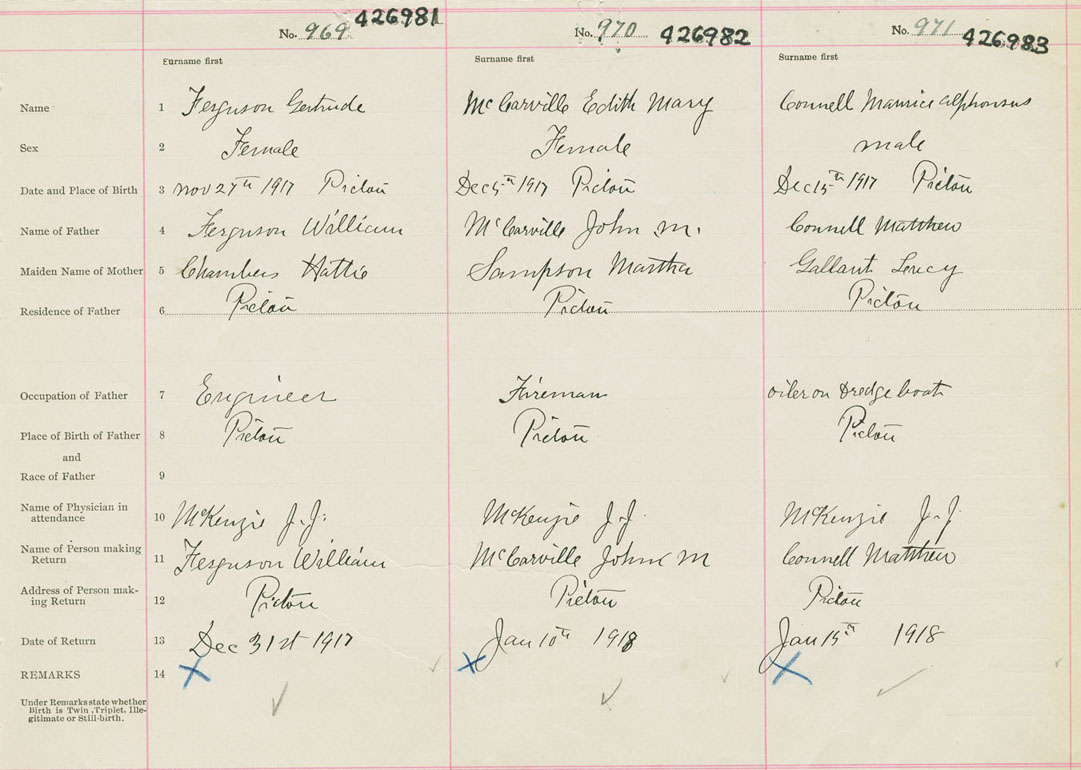 No. 969 426981 No. 970 426982 No. 971 426983
Surname first Surname first Surname first
Name 1 Ferguson Gertrude McCarville Edith Mary Connell Maurice alphonsus
Sex 2 Female Female male
Date and Place of Birth 3 Nov 27th 1917 Pictou Dec 5th 1917 Pictou Dec 15th 1917 Pictou
Name of Father 4 Ferguson William McCarville John M. Connell Matthew
Maiden Name of Mother 5 Chambers Hattie Sampson Martha Gallant Lucy
Residence of Father 6 Pictou Pictou Pictou
Occupation of Father 7 Engineer Fireman oiler on Dredge boat
Place of Birth of Father 8 Pictou Pictou Pictou
and
Race of Father 9
Name of Physician in
attendance 10 McKenzie J.J. McKenzie J.J. McKenzie J.J.
Name of Person making
Return 11 Ferguson William McCarville John M Connell Matthew
Address of Person mak-
ing Return 12 Pictou Pictou Pictou
Date of Return 13 Dec 31st 1917 Jan 10th 1918 Jan 15th 1918
REMARKS 14
Under Remarks state whether
Birth is Twin, Triplet, Ille-
gitimate or Still-birth.